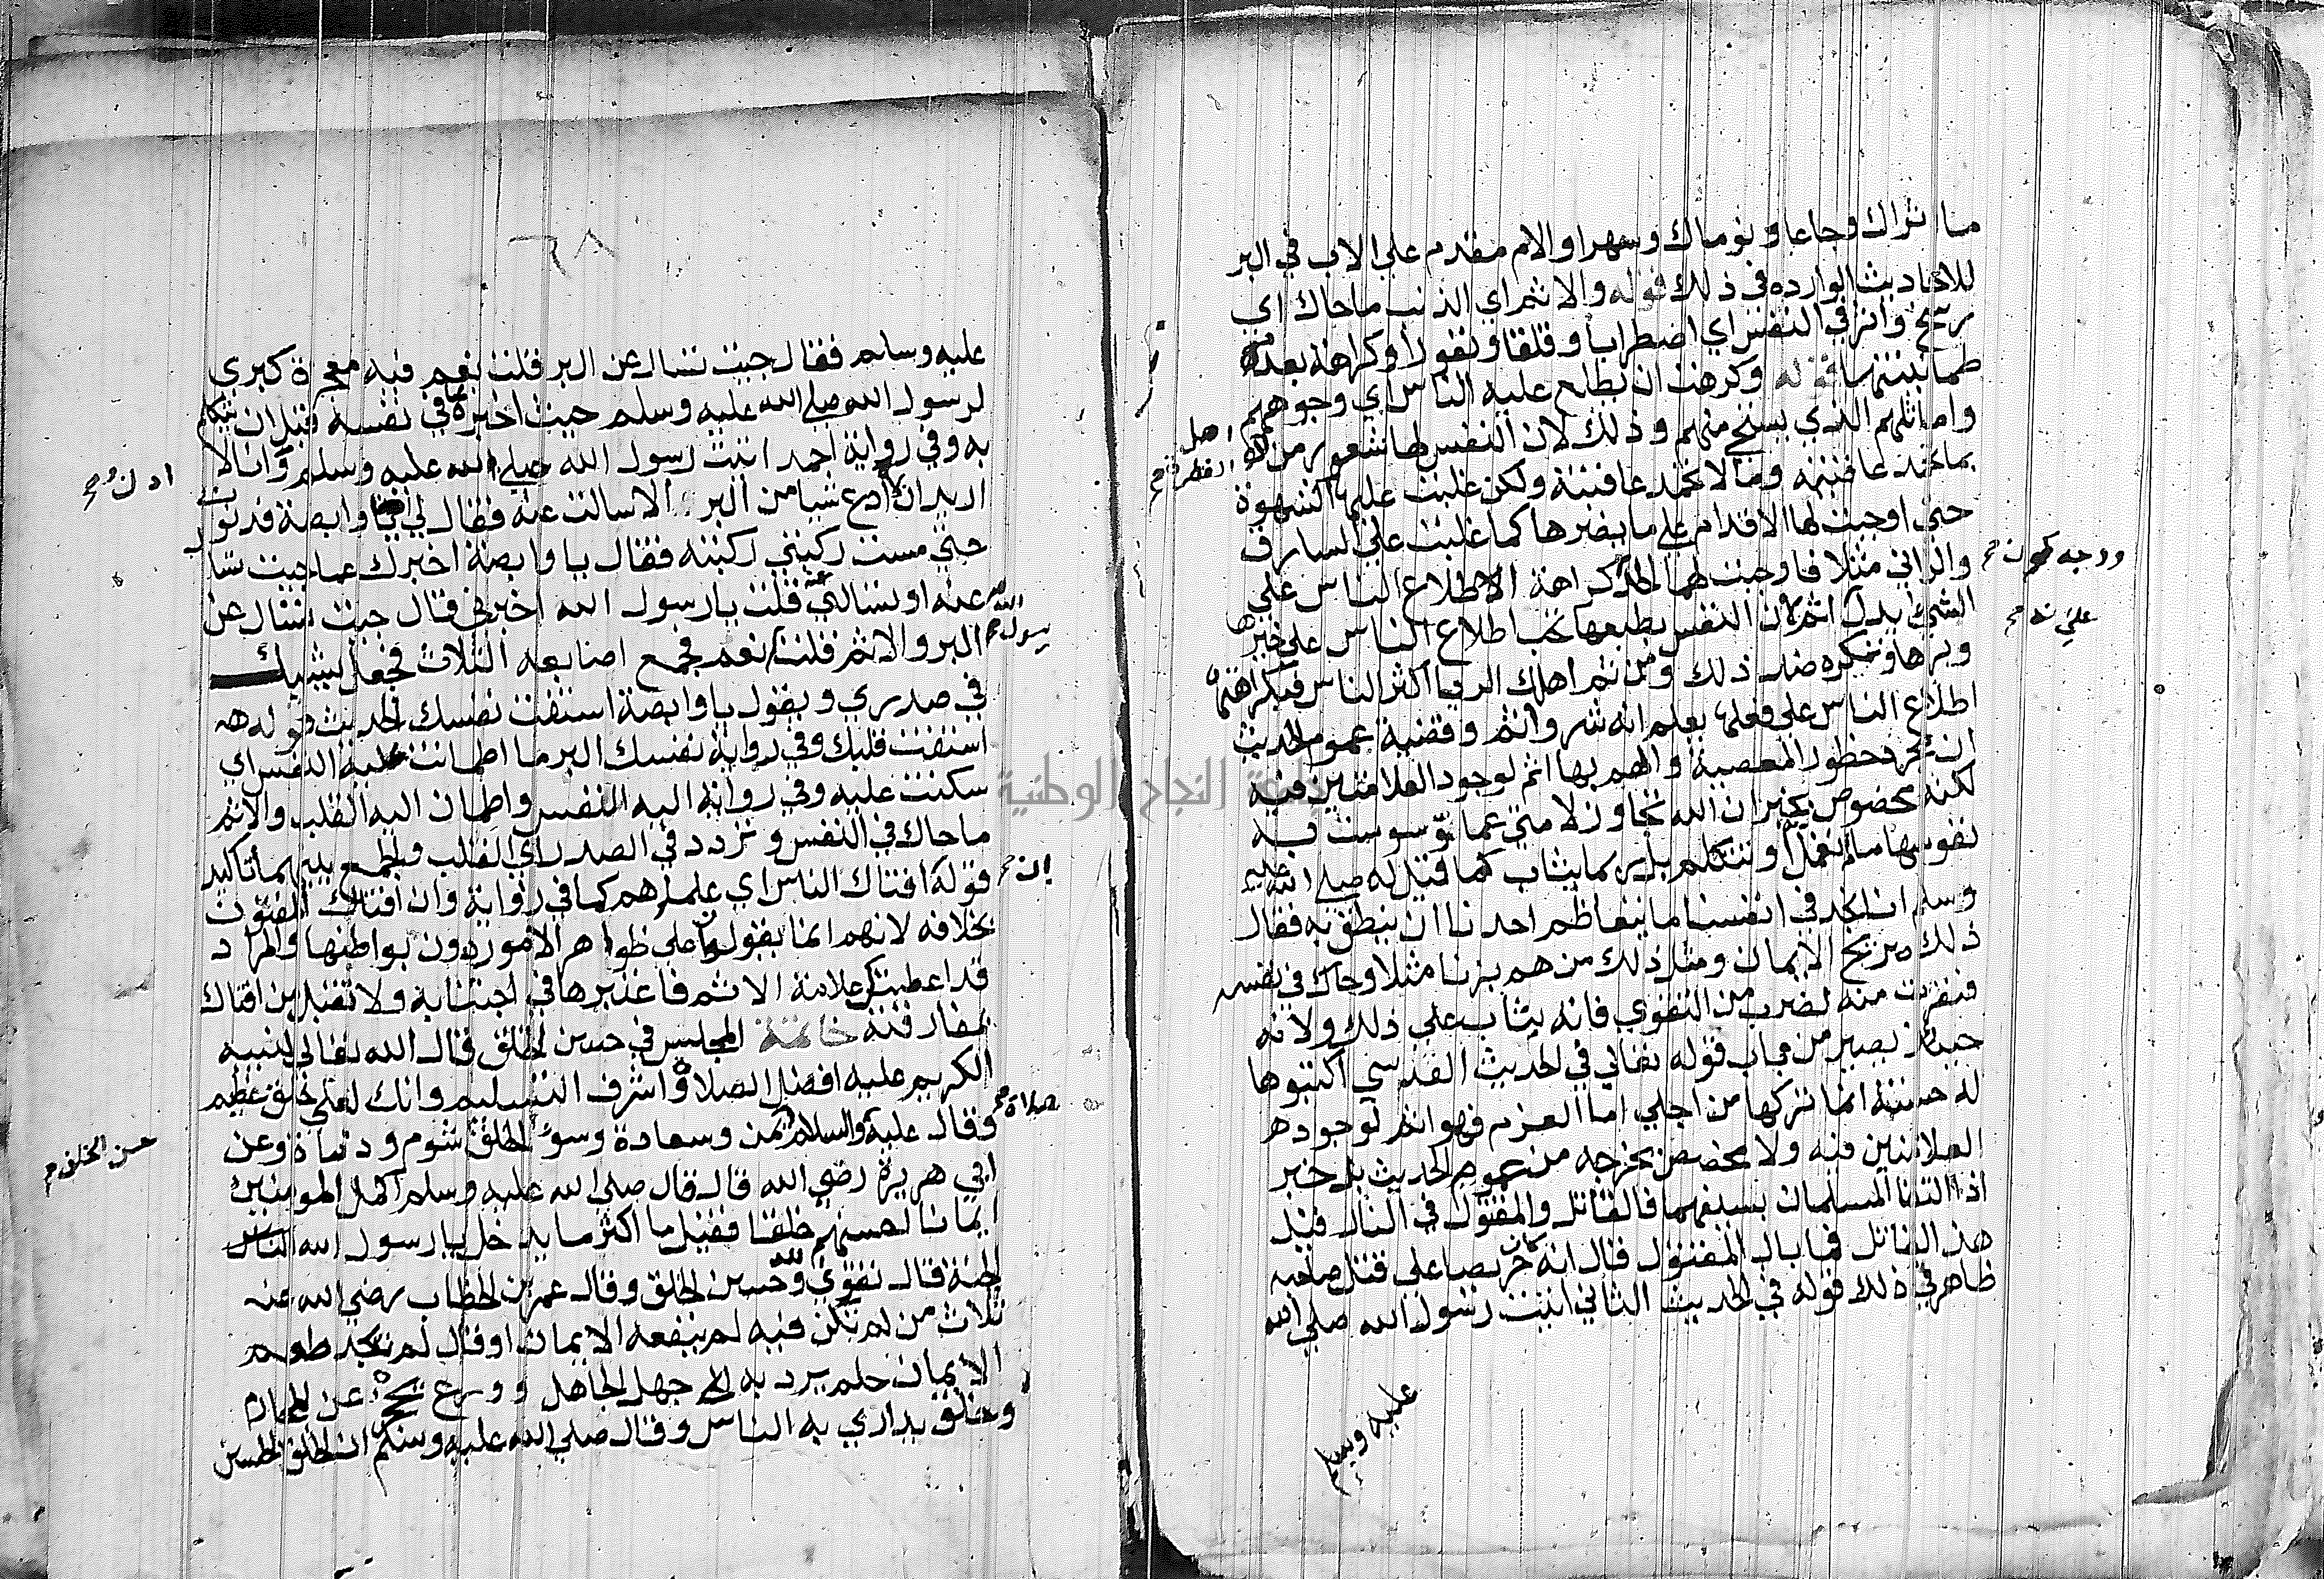 ما اثراك وجاعا ونوماك وسهرا والام مقدم على الاب في البر
للاحاديث الوارده في ذلك قوله والاثم اي الذنب ما حاك اي
رسخ واثر في النفس اي اضطرابا وقلقا ونفورا وكراهة بعدم
طمانينتها قوله وكرهت ان يطلع عليه الناس اي وجوههم
واماثلهم الذي يستحي منهم وذلك لان النفس لها شعور من
اصل الفطرة صح
بما تحمد عاقبته وما لا تحمد عاقبته ولكن غلبت عليها الشهوة
حتى اوجبت لها الاقدام على ما يضرها كما غلبت على السارق
والزاني مثلا فاوجبت لهما الحد كراهة الاطلاع الناس على
ووجه كون صح
الشيء يدل انه اثم لان النفس بطبعها تحب اطلاع الناس على خيرها
على انه صح
وبرها وتكره ضد ذلك ومن ثم اهلك الريا اكثر الناس فبكراهتها
اطلاع الناس على فعلها يعلم انه شر واثم وقضية عموم الحديث
ان مجرد خطور المعصية والهم بها اثم لوجود العلامتين فيه
لكنه مخصوص بخبر ان الله تجاوز لامتي عما توسوست به
نفوسها ما لم تعمل او تتكلم بل ربما يثاب كما قيل له صلى الله عليه
وسلم ان نجد في انفسنا ما يتعاظم احدنا ان ينطق به فقال
ذلك صريح الايمان ومثل ذلك من هم بزنا مثلا وحاك في نفسه
فنفرت منه لضرب من التقوى فانه يثاب على ذلك ولانه
حينئذ يصير من باب قوله تعالى في الحديث القدسي اكتبوها
له حسنة انما تركها من اجلي اما العزم فهو اثم لوجوده
العلامتين فيه ولا مخصص يخرجه من عموم الحديث بل خبر
اذا التقا المسلمان بسيفهما فالقاتل والمقتول في النار قيل
هذا القاتل فما بال المقتول قال انه كان حريصا على قتل صاحبه
ظاهر في ذلك قوله في الحديث الثاني اتيت رسول الله صلى الله
عليه وسلم
٦٨
عليه وسلم فقال جيت تسال عن البر قلت نعم فيه معجزة كبرى
لرسول الله صلى الله عليه وسلم حيث اخبره بما في نفسه قبل ان يتكلم
به وفي رواية احمد اتيت رسول الله صلى الله عليه وسلم وانا لا
اريد ان ادع شيا من البر الا سالت عنه فقال لي يا وابصة فدنوت
ادن صح
حتى مست ركبتي ركبته فقال يا وابصة اخبرك عما جيت تسا
عنه او تسالني عنه قلت يا رسول الله اخبرني قال جيت تسال عن
البر والاثم قلت نعم فجمع اصابعه الثلاث فجعل ينكت
في صدري ويقول يا وابصة استفت نفسك الحديث قوله
استفت قلبك وفي رواية نفسك البر ما اطمانت عليه النفس اي
سكنت عليه وفي رواية اليه النفس واطمان اليه القلب والاثم
ما حاك في النفس وتردد في الصدر اي القلب والجمع بينهما تاكيد
قوله افتاك الناس اي علماؤهم كما في رواية وان افتاك المفتون
ان صح
بخلافه لانهم انما يقولون على ظواهر الامور دون بواطنها والمراد
قد اعطيتك علامة الاثم فاعتبرها في اجتنابه ولا تقبل من افتاك
بمقارفته خاتمة المجلس في حسن الخلق قال الله تعالى لنبيه
الكريم عليه افضل الصلاة واشرف التسليم وانك لعلى خلق عظيم
وقال عليه والسلام يمن وسعادة وسوء الخلق شوم ودناة وعن
صلاة صح
حسن الخلق صح
ابي هريرة رضي الله قال قال صلى الله عليه وسلم اكمل المومنين
ايمانا احسنهم خلقا فقيل ما اكثر ما يدخل يا رسول الله الناس
الجنة قال تقوى الله وحسن الخلق وقال عمر بن الخطاب رضي الله عنه
ثلاث من لم تكن فيه لم ينفعه الايمان او قال لم يجد طعم
الايمان حلم يرد به جهل الجاهل وورع يحجزه عن المحارم
وخلق يداري به الناس وقال صلى الله عليه وسلم ان الخلق الحسن
جامعة النجاح الوطنية